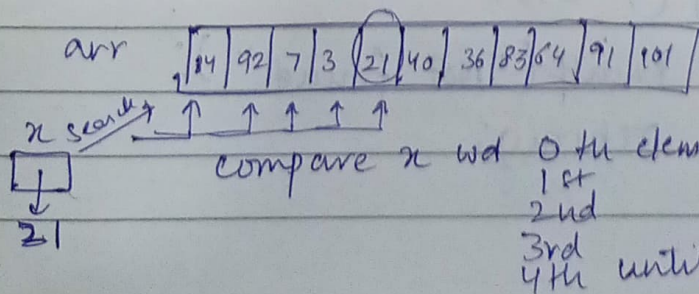 arr 14 92 7 3 21 40 36 83 64 91 101
x search
compare x wd 0 th elem
1st
2nd
3rd
4th until
21